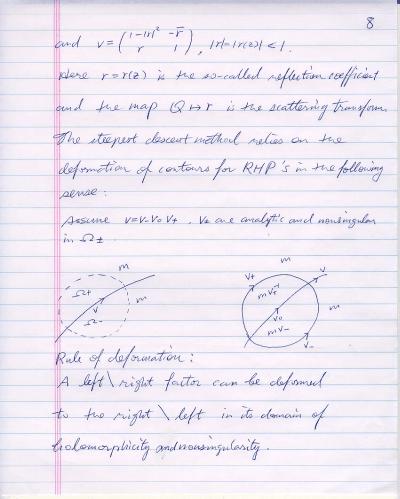 8
and v = ( 1-|r|² -r̄ ; r 1 ), |r|=|r(z)|<1.
Here r=r(z) is the so-called reflection coefficient
and the map Q ↦ r is the scattering transform.
The steepest descent method relies on the
deformation of contours for RHP's in the following
sense:
Assume v=v₋v₀v₊. v± are analytic and nonsingular
in Ω±.
m m
Ω+ m v+ v
v m v+⁻¹ m
Ω- v₀
m v₋ v₋
Rule of deformation:
A left\right factor can be deformed
to the right\left in its domain of
holomorphicity and nonsingularity.